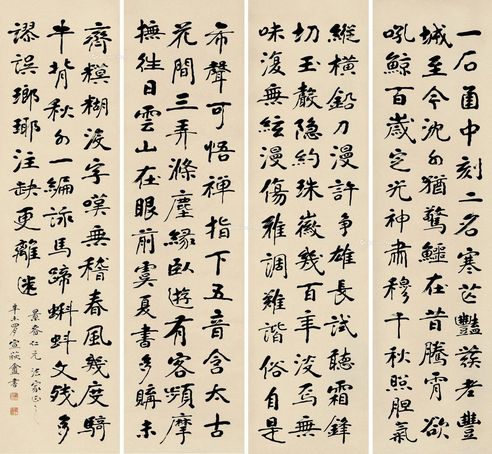 一石函中刻二名寒芒豔蔟老豐
城至今沈水猶驚鱷在昔騰霄欲
吼鯨百歲定光神肅穆千秋照胆氣
縱橫鉛刀漫許爭雄長試聽霜鋒
切玉聲隱約珠徽幾百年淡焉無
味復無絃漫傷雅調難諧俗自是
希聲可悟禅指下五音含太古
花間三弄滌塵緣臥遊有客頻摩
撫往日雲山在眼前虞夏書多購未
齊糢糊字嘆無稽春風幾度騎
牛背秋水一編詠馬蹄蝌蚪文殘多
謬誤瑯瑯注缺更離迷
景春仁兄法家正之
辛未盦書